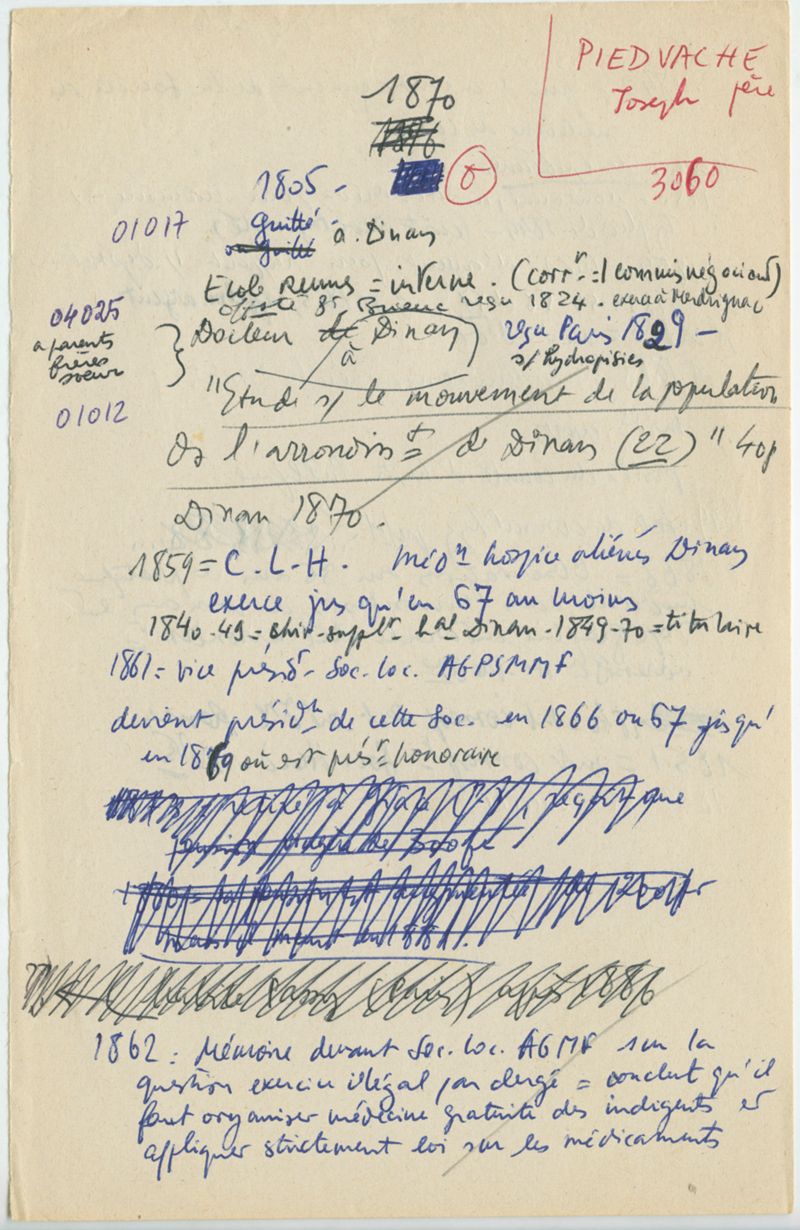 PIEDVACHE
Joseph père
3060
1870
1805 -
01017
Guitté
a. Dinan
Ecole Rennes = interne. (corrt = 1 commis négociant)
Off. sté St Brieuc reçu 1824. exerce à Merdrignac
04025
a parents
frères
soeur
Docteur de Dinan reçu Paris 1829 -
à
s/ hydropisies
01012
"Etude s/ le mouvement de la population
de l'arrondisst de Dinan (22)" 40p
Dinan 1870.
1859 = C.L.H. Médn hospice aliénés Dinan
exerce jusqu'en 67 au moins
1840-49 = chir-supplt hal Dinan - 1849-70 = titulaire
1861 = vice présidt Soc. loc. AGPSMMF
devient présidt de cette Soc. en 1866 ou 67 jusqu'
en 1869 où est prést honoraire
1862 = Mémoire devant Soc. loc. AGMF sur la
question exercice illégal par clergé = conclut qu'il
faut organiser médecine gratuite des indigents et
appliquer strictement loi sur les médicaments